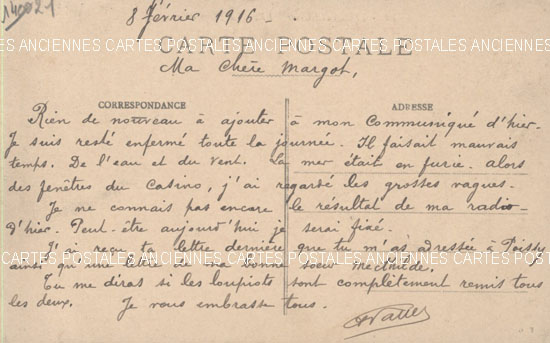 14021
8 février 1916
CARTE POSTALE
CARTES POSTALES ANCIENNES CARTES POSTALES ANCIENNES CARTES POSTALES
Ma Chère Margot,
CORRESPONDANCE ADRESSE
Rien de nouveau à ajouter à mon Communiqué d'hier.
Je suis resté enfermé toute la journée. Il faisait mauvais
temps. De l'eau et du vent. La mer était en furie. Alors
des fenêtres du Casino, j'ai regardé les grosses vagues.
Je ne connais pas encore le résultat de ma radio
d'hier. Peut-être aujourd'hui je serai fixé.
J'ai reçu ta lettre dernière que tu m'as adressée à Poissy
CARTES POSTALES ANCIENNES CARTES POSTALES ANCIENNES CARTES POSTALES
ainsi qu'une lettre de ta bonne soeur
Tu me diras si les loupiots sont complètement remis tous
les deux. Je vous embrasse tous.